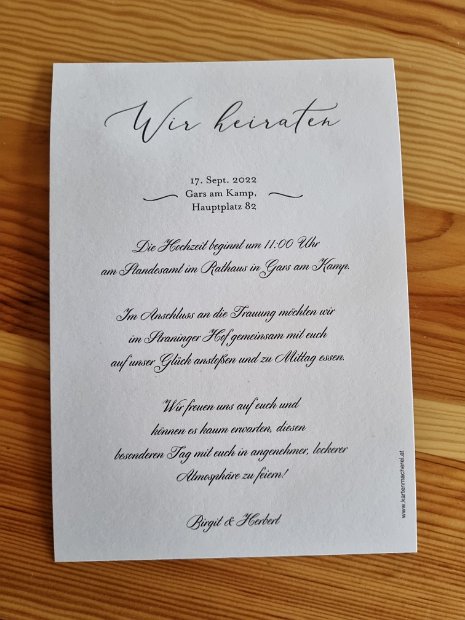 Wir heiraten
17. Sept. 2022
Gars am Kamp,
Hauptplatz 82
Die Hochzeit beginnt um 11:00 Uhr
am Standesamt im Rathaus in Gars am Kamp.
Im Anschluss an die Trauung möchten wir
im Straninger Hof gemeinsam mit euch
auf unser Glück anstoßen und zu Mittag essen.
Wir freuen uns auf euch und
können es kaum erwarten, diesen
besonderen Tag mit euch in angenehmer, lockerer
Atmosphäre zu feiern!
Birgit & Herbert
www.kartenmacherei.at